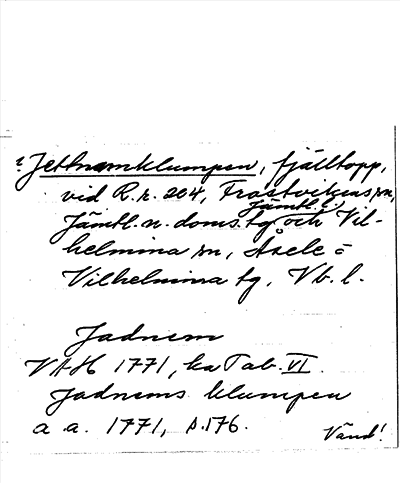 ? Jetnamklumpen, fjälltopp,
vid R.r. 204, Frostvikens sn,
Jämtl. n. doms. tg, Jämtl. l. och Vil-
helmina sn, Åsele =
Vilhelmina tg, Vb. l.
Jadnem
VAH 1771, ka Tab. VI.
Jadnems klumpen
a. a. 1771, s. 176.
Vänd!